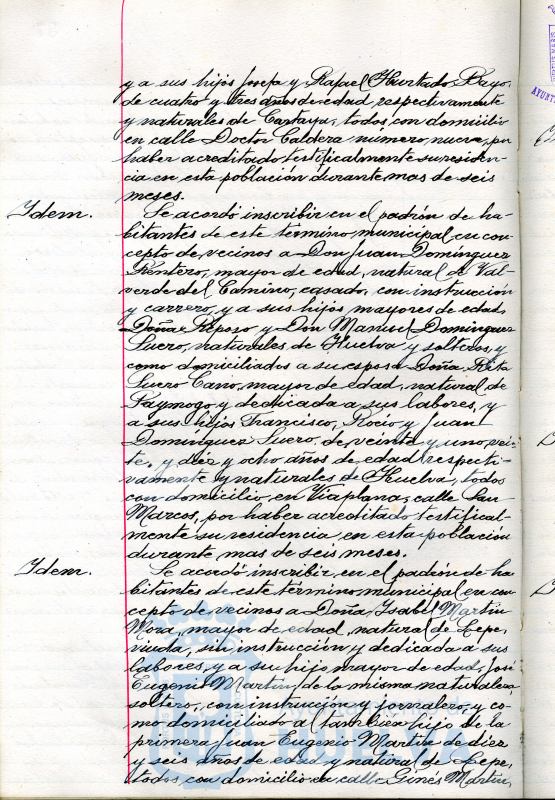 y a sus hijos Josefa y Rafael Hurtado Bayo,
de cuatro y tres años de edad respectivamente
y naturales de Cartaya, todos con domicilio
en calle Doctor Caldera número nueve, por
haber acreditado testificalmente su residen-
cia en esta población durante mas de seis
meses.
Idem.
Se acordó inscribir en el padrón de ha-
bitantes de este término municipal en con-
cepto de vecinos a Don Juan Domínguez
Rentero, mayor de edad, natural de Val-
verde del Camino, casado, con instrucción
y carrero, y a sus hijos mayores de edad,
Doña Reposo y Don Manuel Domínguez
Suero, naturales de Huelva y solteros, y
como domiciliados a su esposa Doña Rita
Suero Cano, mayor de edad, natural de
Paymogo y dedicada a sus labores, y
a sus hijos Francisco, Rocío y Juan
Domínguez Suero, de veinte y uno, vein-
te, y diez y ocho años de edad respecti-
vamente y naturales de Huelva, todos
con domicilio en Viaplana, calle San
Marcos, por haber acreditado testifical-
mente su residencia en esta población
durante mas de seis meses.
Idem.
Se acordó inscribir en el padrón de ha
bitantes de este término municipal en con
cepto de vecinos a Doña Isabel Martín
Mora, mayor de edad, natural de Lepe,
viuda, sin instrucción y dedicada a sus
labores, y a su hijo mayor de edad, José
Eugenio Martín, de la misma naturaleza
soltero, con instrucción y jornalero, y co-
mo domiciliado al también hijo de la
primera Juan Eugenio Martín de diez
y seis años de edad y natural de Lepe,
todos con domicilio en calle Ginés Martín,